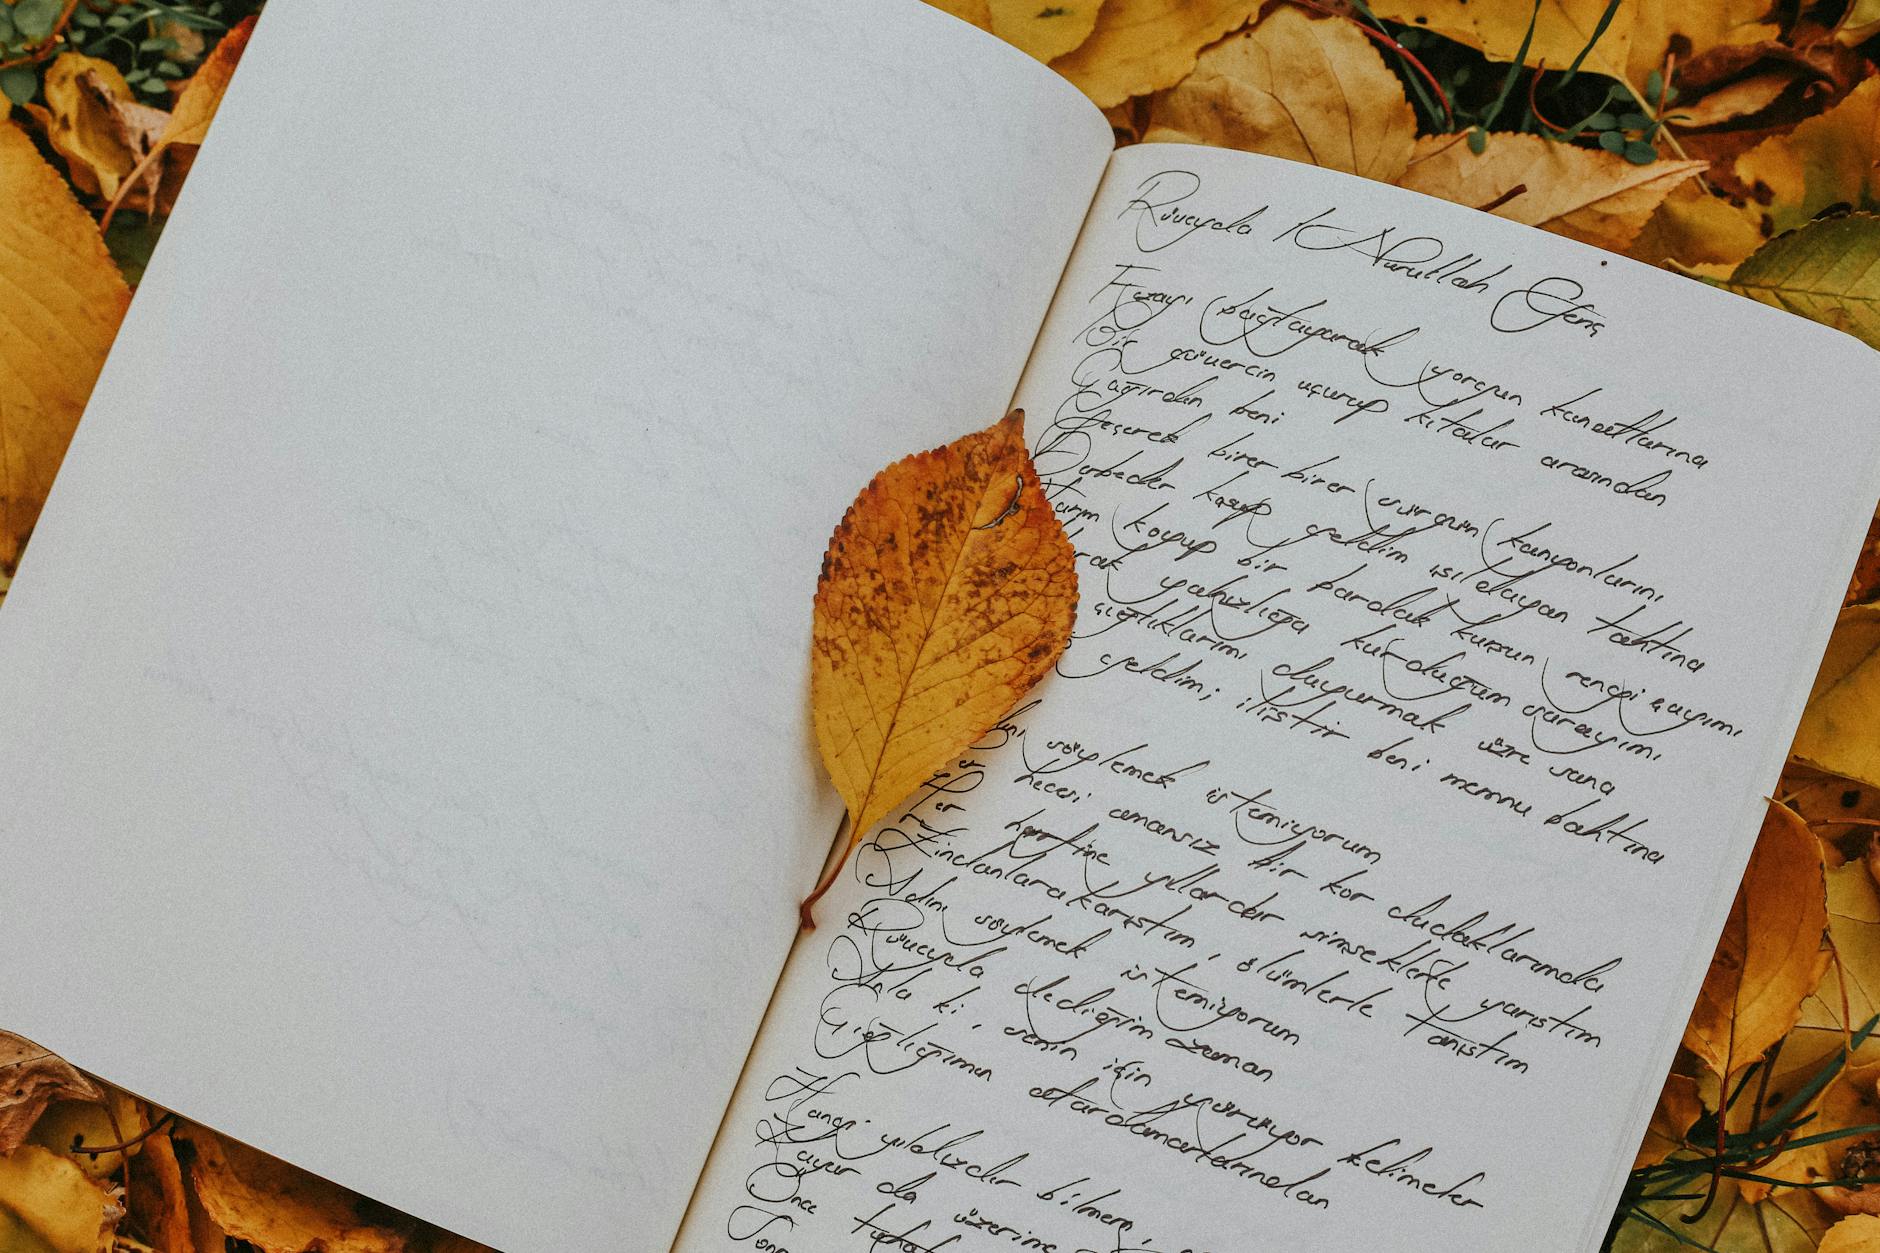 Rüveyda / Nurullah Genç
Fezayı bağlayarak yorgun kanatlarına
Bir güvercin uçurup kıtalar arasından
Çağırdın beni
Geçerek birer birer sürgün kanyonlarını
Derbeder koşup geldim ışıldayan tahtına
koyup bir bardak kurşun rengi çayımı
yalnızlığa kurduğum sarayımı
çığlıklarımı duyurmak üzre sana
geldim; iliştir beni memnu bahtına
söylemek istemiyorum
Her hecesi amansız bir kor dudaklarımda
Her harfine yıllardır şimşeklerle yarıştım
Zindanlara karıştım, ölümlerle tanıştım
Adını söylemek istemiyorum
Rüveyda dediğim zaman
Anla ki, senin için yürüyor kelimeler
Çığlığımın atardamarlarından
Hangi yıldızdır bilmem,
Kayar da üzerime
Önce